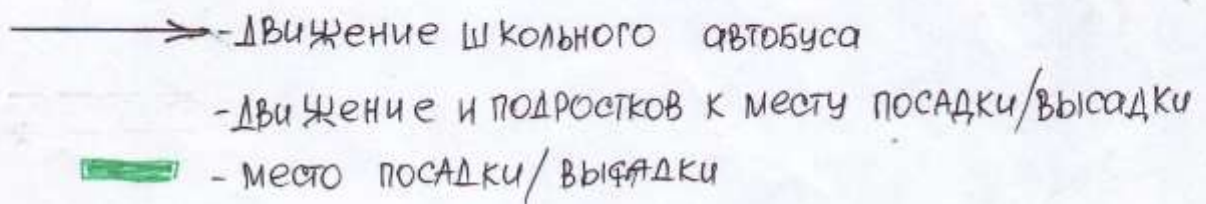 - движение школьного автобуса
- движение и подростков к месту посадки/высадки
- место посадки/высадки